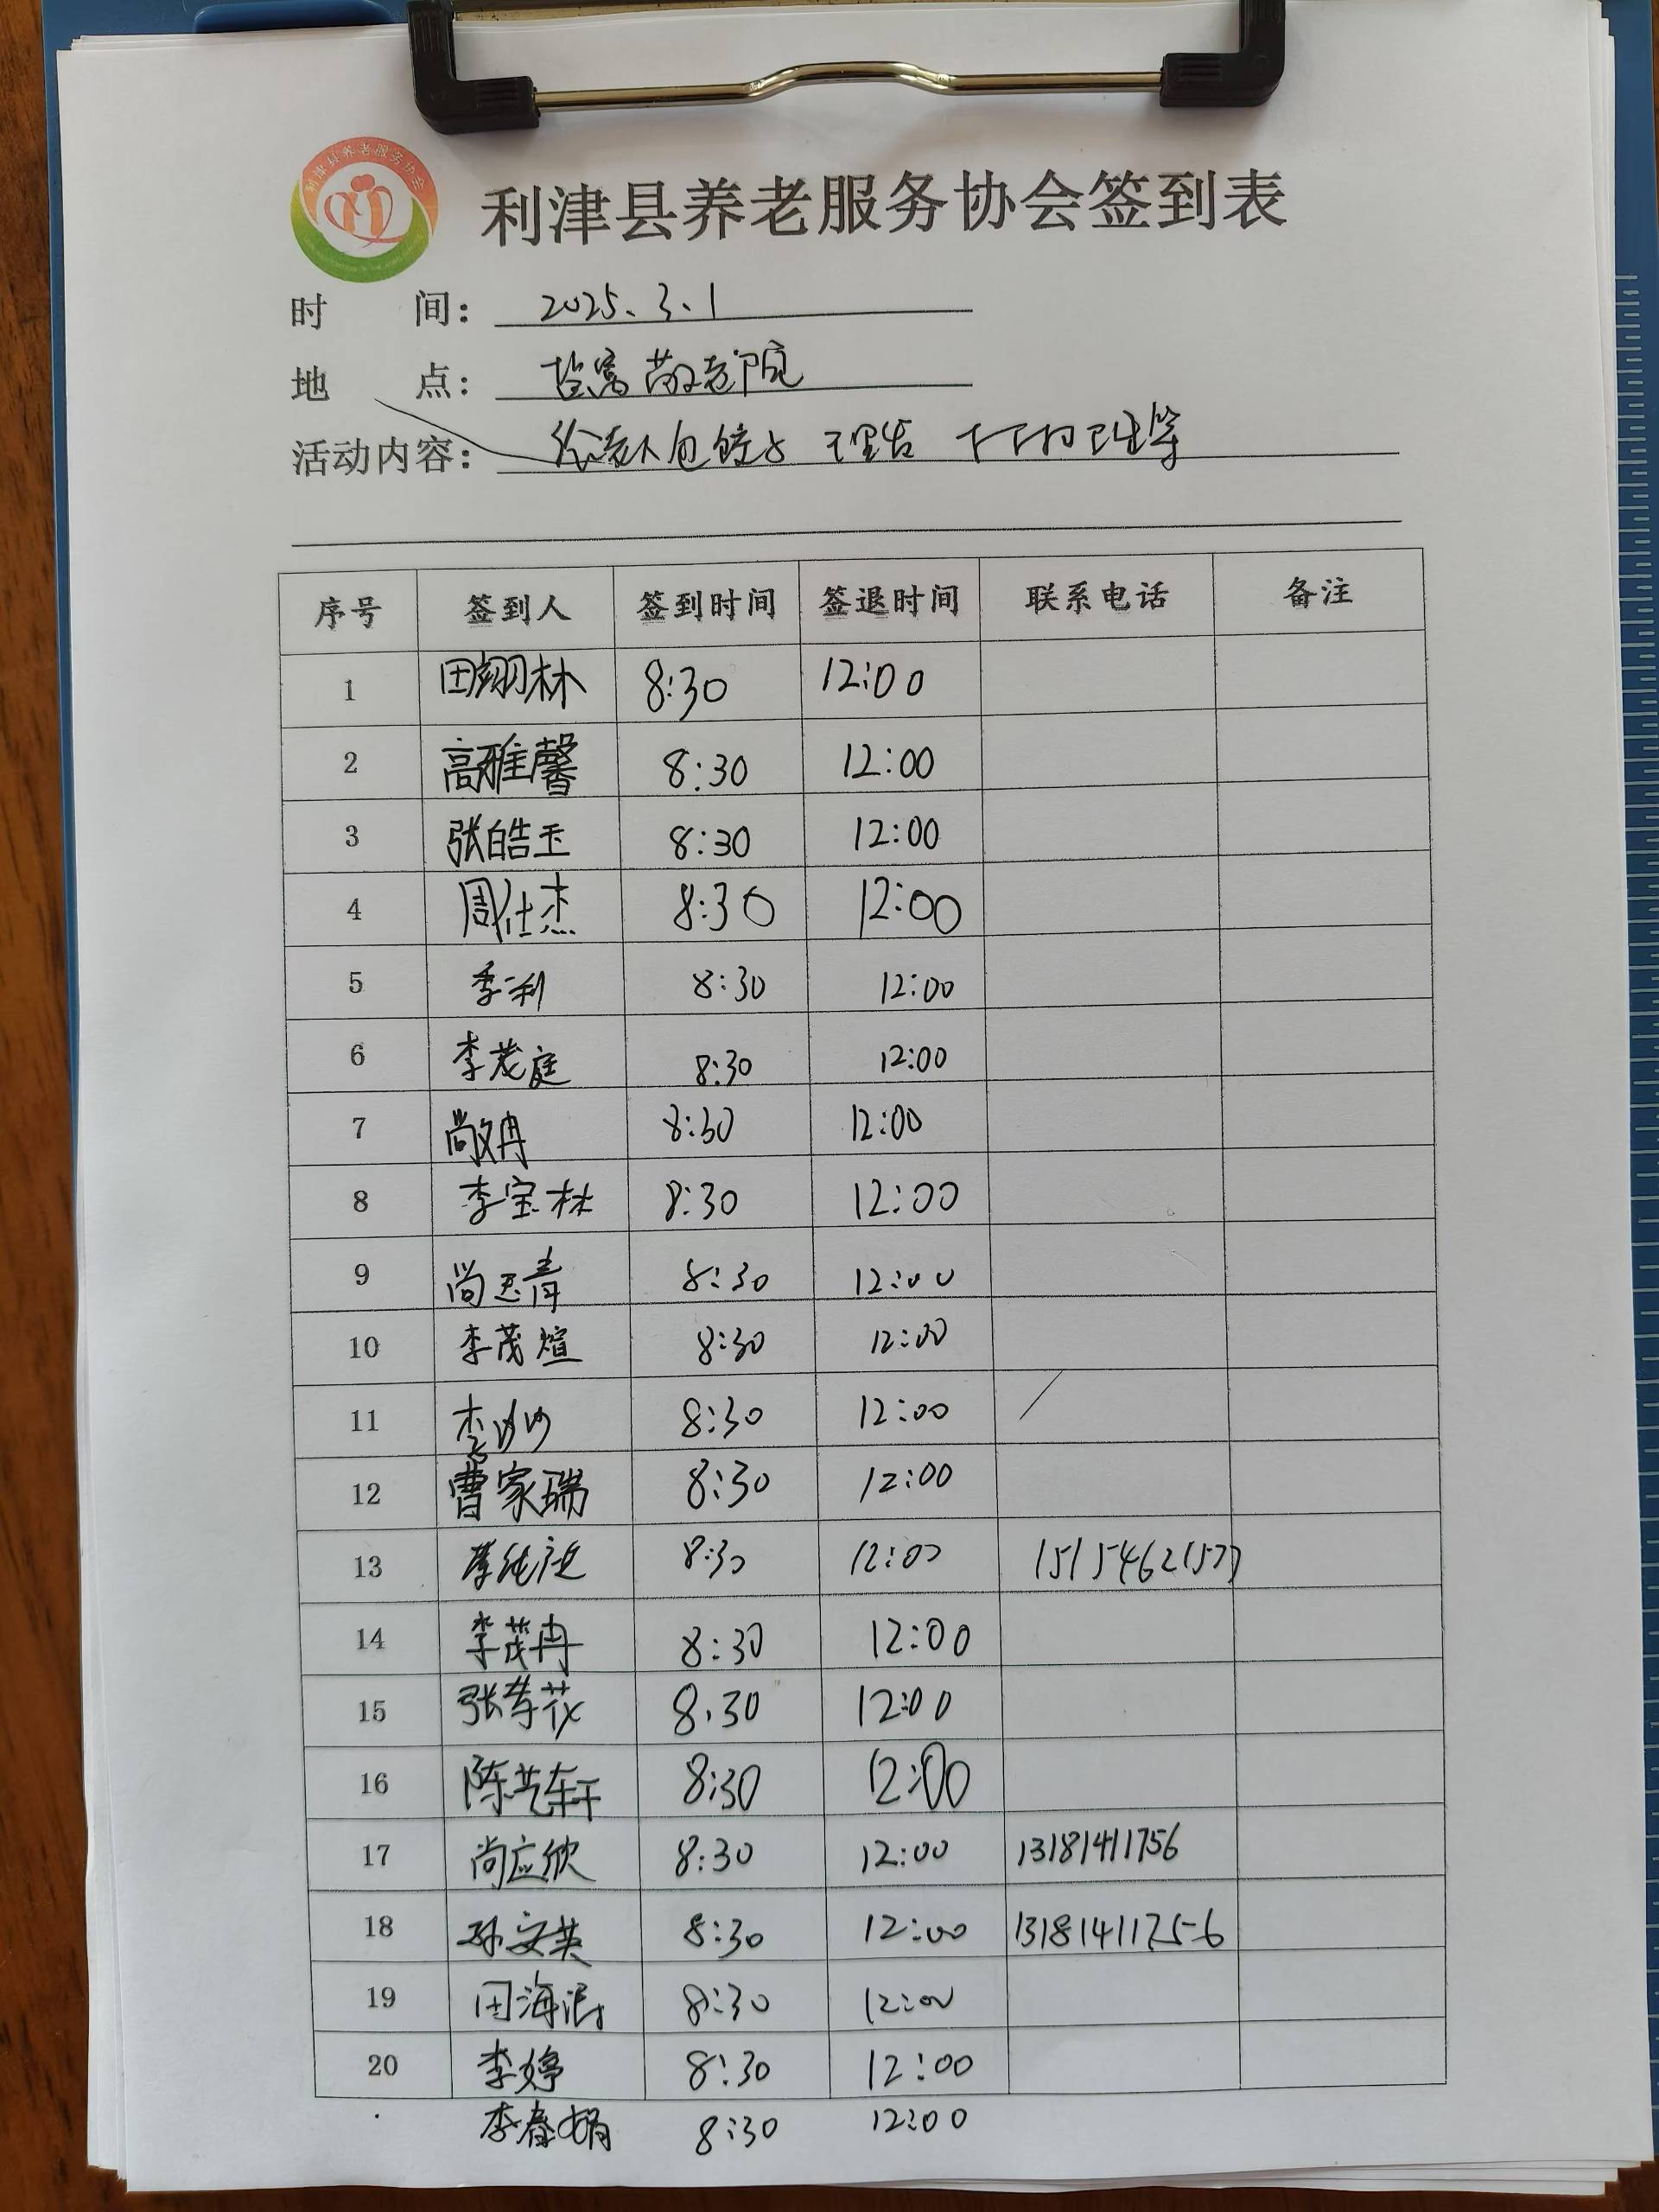 利津县养老服务协会
利津县养老服务协会签到表
时 间: 2025.3.1
地 点: 盐窝敬老院
活动内容: 给老人包饺子 理发 打扫卫生等
序号 签到人 签到时间 签退时间 联系电话 备注
1 田翙林 8:30 12:00
2 高雅馨 8:30 12:00
3 张皓玉 8:30 12:00
4 周仕杰 8:30 12:00
5 季利 8:30 12:00
6 李茂庭 8:30 12:00
7 尚文冉 8:30 12:00
8 李宝林 8:30 12:00
9 尚玉青 8:30 12:00
10 李茂煊 8:30 12:00
11 李 8:30 12:00
12 曹家瑞 8:30 12:00
13 8:30 12:00 15154621577
14 李茂冉 8:30 12:00
15 张孝 8:30 12:00
16 陈艺轩 8:30 12:00
17 尚应欣 8:30 12:00 13181411756
18 孙文英 8:30 12:00 13181411756
19 田海滨 8:30 12:00
20 李婷 8:30 12:00
李春娟 8:30 12:00